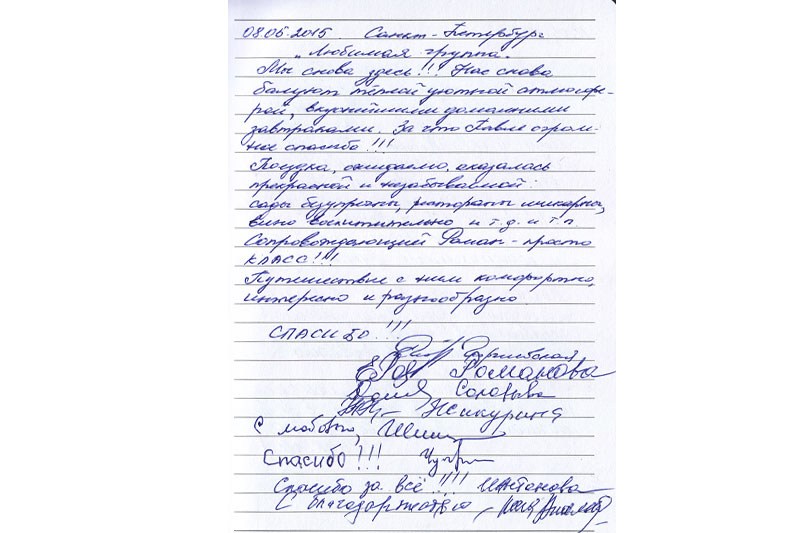 08.06.2015. Санкт-Петербург.
"Любимая группа".
Мы снова здесь!!! Нас снова
балуют тёплой уютной атмосфе-
рой, вкуснейшими домашними
завтраками. За что Павле огром-
ное спасибо!!!
Поездка, ожидаемо, оказалась
прекрасной и незабываемой:
сады безупречны, рестораны шикарны,
вино восхитительно и т.д. и т.п.
Сопровождающий Роман - просто
КЛАСС!!!
Путешествие с ним комфортно,
интересно и разнообразно.
СПАСИБО!!!
Романова
Соловьева
С любовью,
Спасибо!!!
Спасибо за всё!!!!
С благодарностью